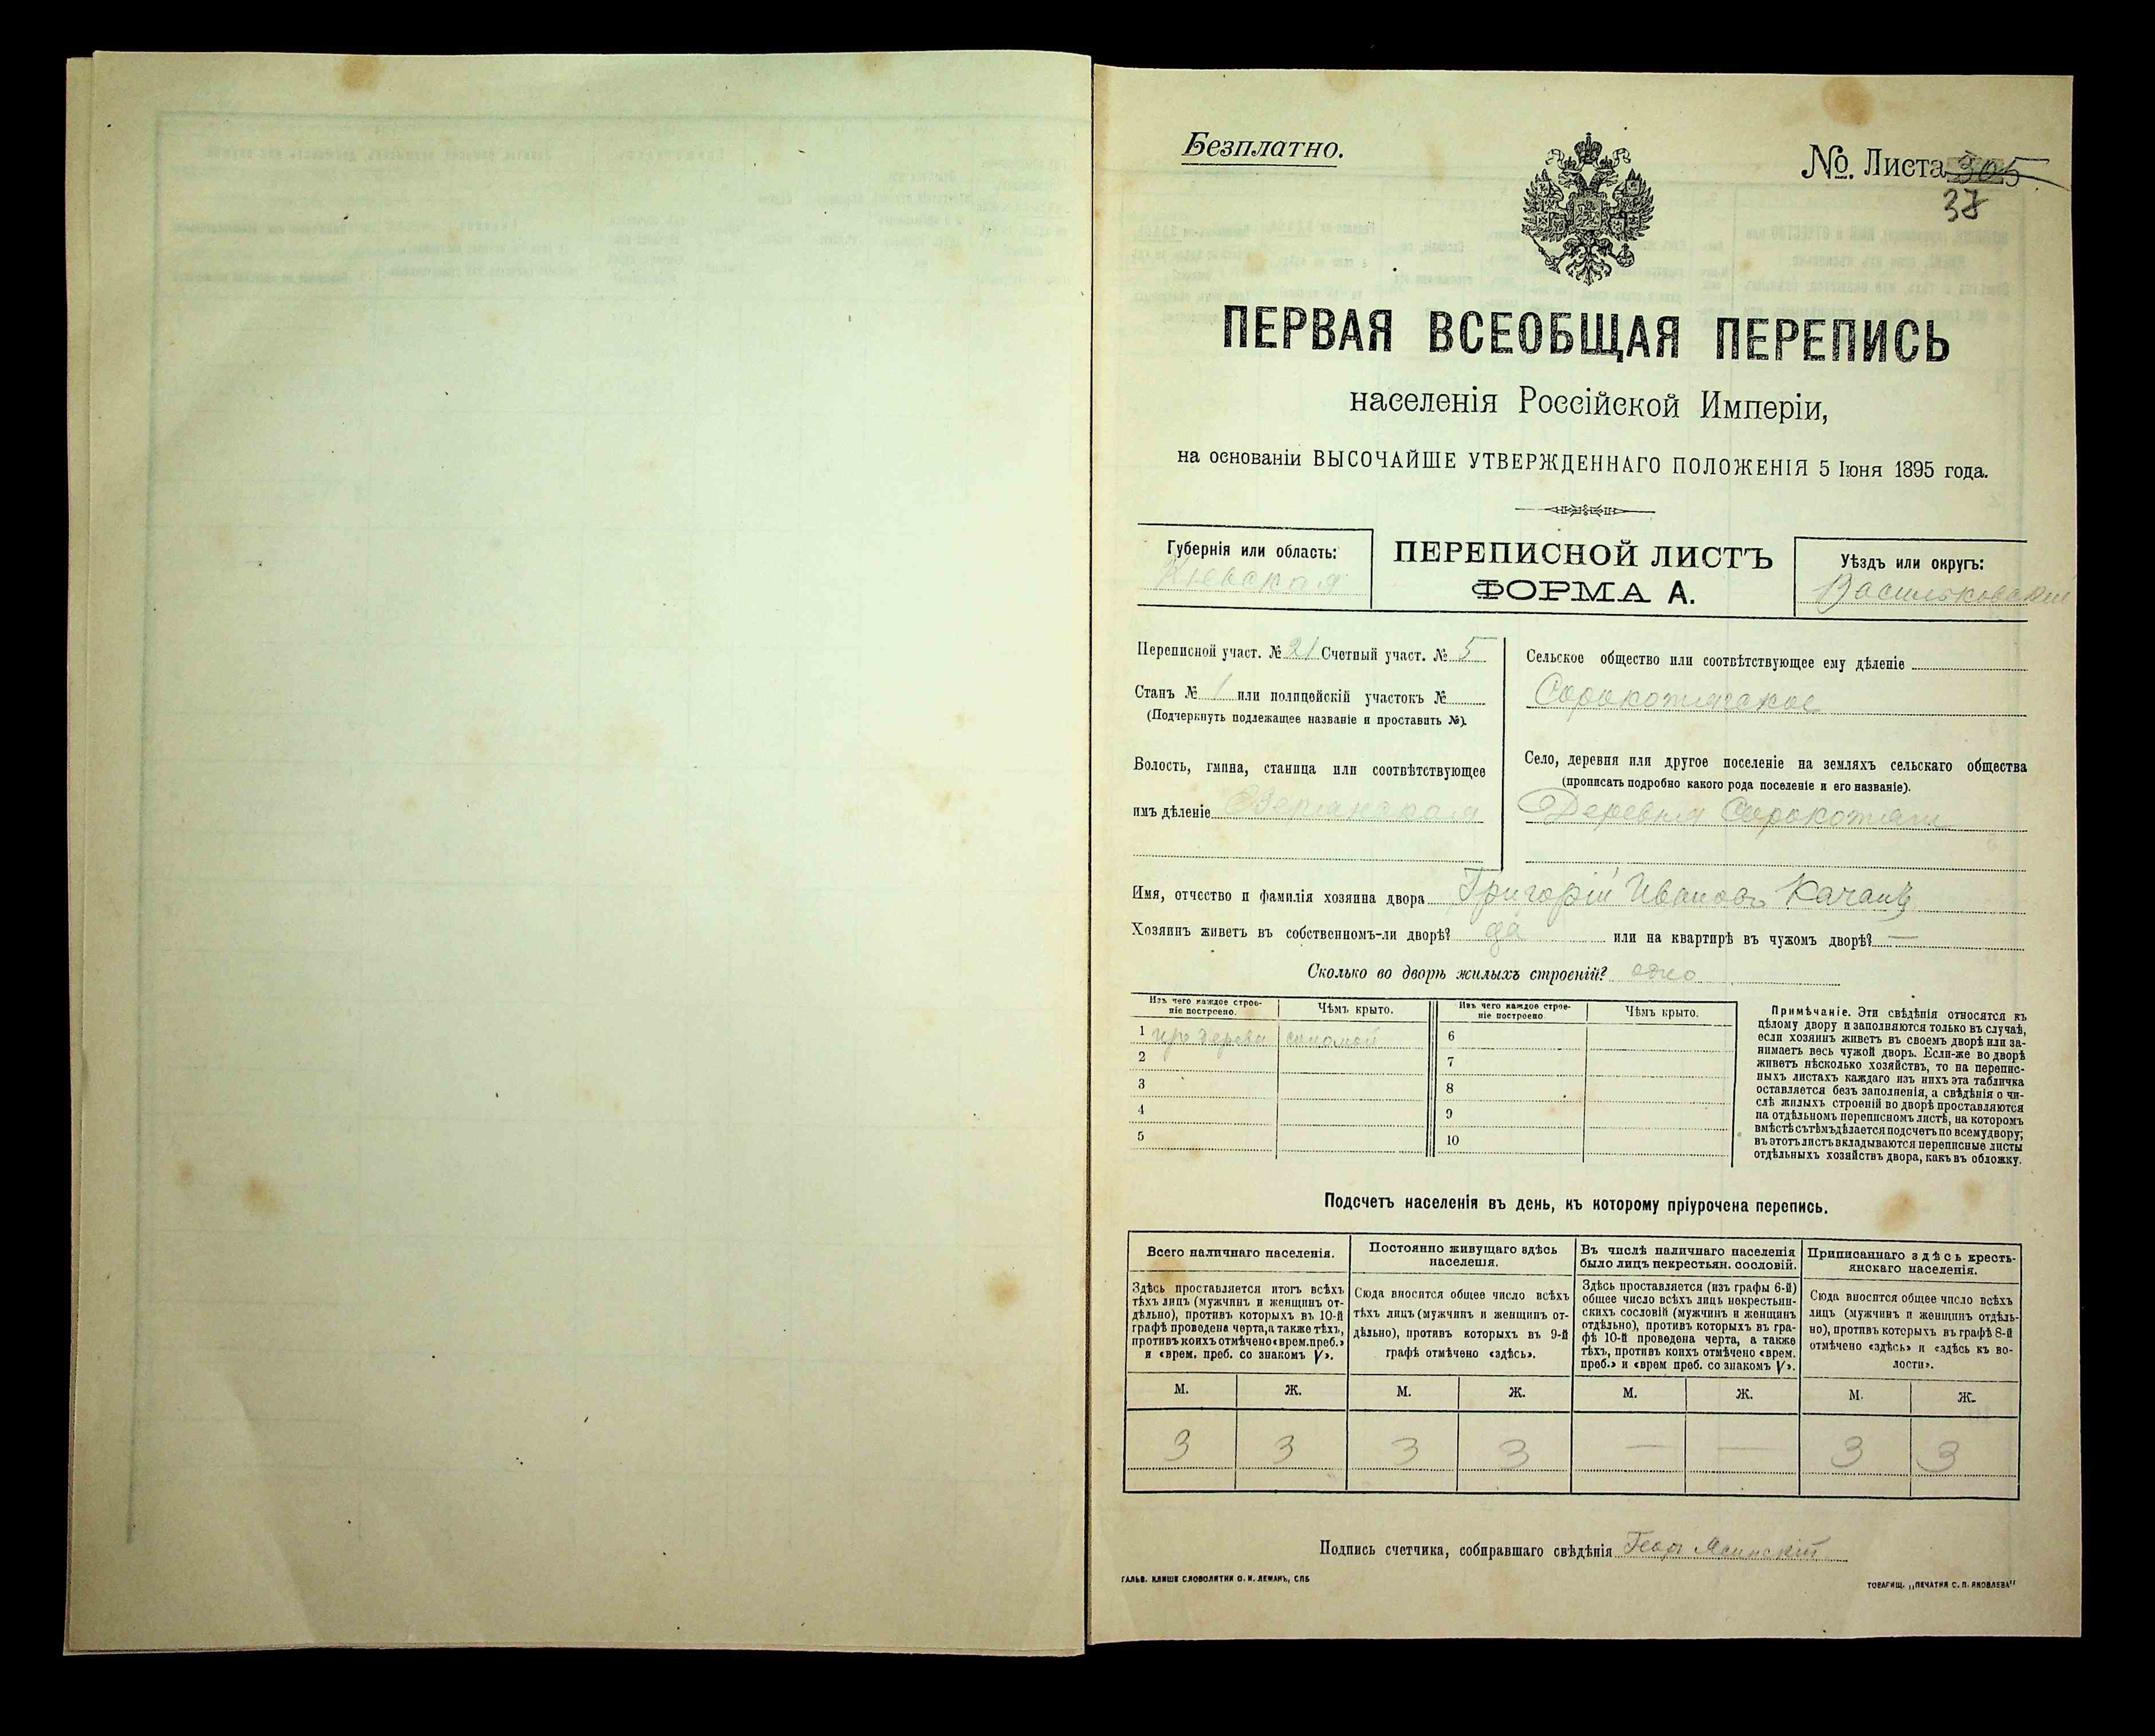 Безплатно.
№. Листа 305
37
ПЕРВАЯ ВСЕОБЩАЯ ПЕРЕПИСЬ
населенія Россійской Имперіи,
на основаніи ВЫСОЧАЙШЕ УТВЕРЖДЕННАГО ПОЛОЖЕНІЯ 5 Іюня 1895 года.
Губернія или область:
Кіевская
ПЕРЕПИСНОЙ ЛИСТЪ
ФОРМА А.
Уѣздъ или округъ:
Васильковский
Переписной участ. № 21 Счетный участ. № 5
Станъ № 1 или полицейскій участокъ №
(Подчеркнуть подлежащее названіе и проставить №).
Волость, гмина, станица или соотвѣтствующее
имъ дѣленіе
Сельское общество или соотвѣтствующее ему дѣленіе
Сорокотягское
Село, деревня или другое поселеніе на земляхъ сельскаго общества
(прописать подробно какого рода поселеніе и его названіе).
Деревня Сорокотяги
Имя, отчество и фамилія хозяина двора Григорій Ивановъ
Хозяинъ живетъ въ собственномъ-ли дворѣ? да или на квартирѣ въ чужомъ дворѣ? —
Сколько во дворѣ жилыхъ строеній? одно
Изъ чего каждое строе-
ніе построено.
Чѣмъ крыто.
Изъ чего каждое строе-
ніе построено
Чѣмъ крыто.
1 изъ дерева соломой 6
2 7
3 8
4 9
5 10
Примѣчаніе. Эти свѣдѣнія относятся къ
цѣлому двору и заполняются только въ случаѣ,
если хозяинъ живетъ въ своемъ дворѣ или за-
нимаетъ весь чужой дворъ. Если-же во дворѣ
живетъ нѣсколько хозяйствъ, то на перепис-
ныхъ листахъ каждаго изъ нихъ эта табличка
оставляется безъ заполненія, а свѣдѣнія о чи-
слѣ жилыхъ строеній во дворѣ проставляются
на отдѣльномъ переписномъ листѣ, на которомъ
вмѣстѣ съ тѣмъ дѣлается подсчетъ по всему двору;
въ этотъ листъ вкладываются переписные листы
отдѣльныхъ хозяйствъ двора, какъ въ обложку.
Подсчетъ населенія въ день, къ которому пріурочена перепись.
Всего наличнаго населенія.
Здѣсь проставляется итогъ всѣхъ
тѣхъ лицъ (мужчинъ и женщинъ от-
дѣльно), противъ которыхъ въ 10-й
графѣ проведена черта, а также тѣхъ,
противъ коихъ отмѣчено «врем. преб.»
и «врем. преб. со знакомъ V».
Постоянно живущаго здѣсь
населенія.
Сюда вносится общее число всѣхъ
тѣхъ лицъ (мужчинъ и женщинъ от-
дѣльно), противъ которыхъ въ 9-й
графѣ отмѣчено «здѣсь».
Въ числѣ наличнаго населенія
было лицъ некрестьян. сословій.
Здѣсь проставляется (изъ графы 6-й)
общее число всѣхъ лицъ некрестьян-
скихъ сословій (мужчинъ и женщинъ
отдѣльно), противъ которыхъ въ гра-
фѣ 10-й проведена черта, а также
тѣхъ, противъ коихъ отмѣчено «врем.
преб.» и «врем преб. со знакомъ V».
Приписаннаго здѣсь кресть-
янскаго населенія.
Сюда вносится общее число всѣхъ
лицъ (мужчинъ и женщинъ отдѣль-
но), противъ которыхъ въ графѣ 8-й
отмѣчено «здѣсь» и «здѣсь къ во-
лости».
М. Ж. М. Ж. М. Ж. М. Ж.
3 3 3 3 — — 3 3
Подпись счетчика, собиравшаго свѣдѣнія Ясинскій
ГАЛЬВ. КЛИШЕ СЛОВОЛИТНИ О. И. ЛЕМАНЪ, СПБ
ТОВАРИЩ. „ПЕЧАТНЯ С. П. ЯКОВЛЕВА"